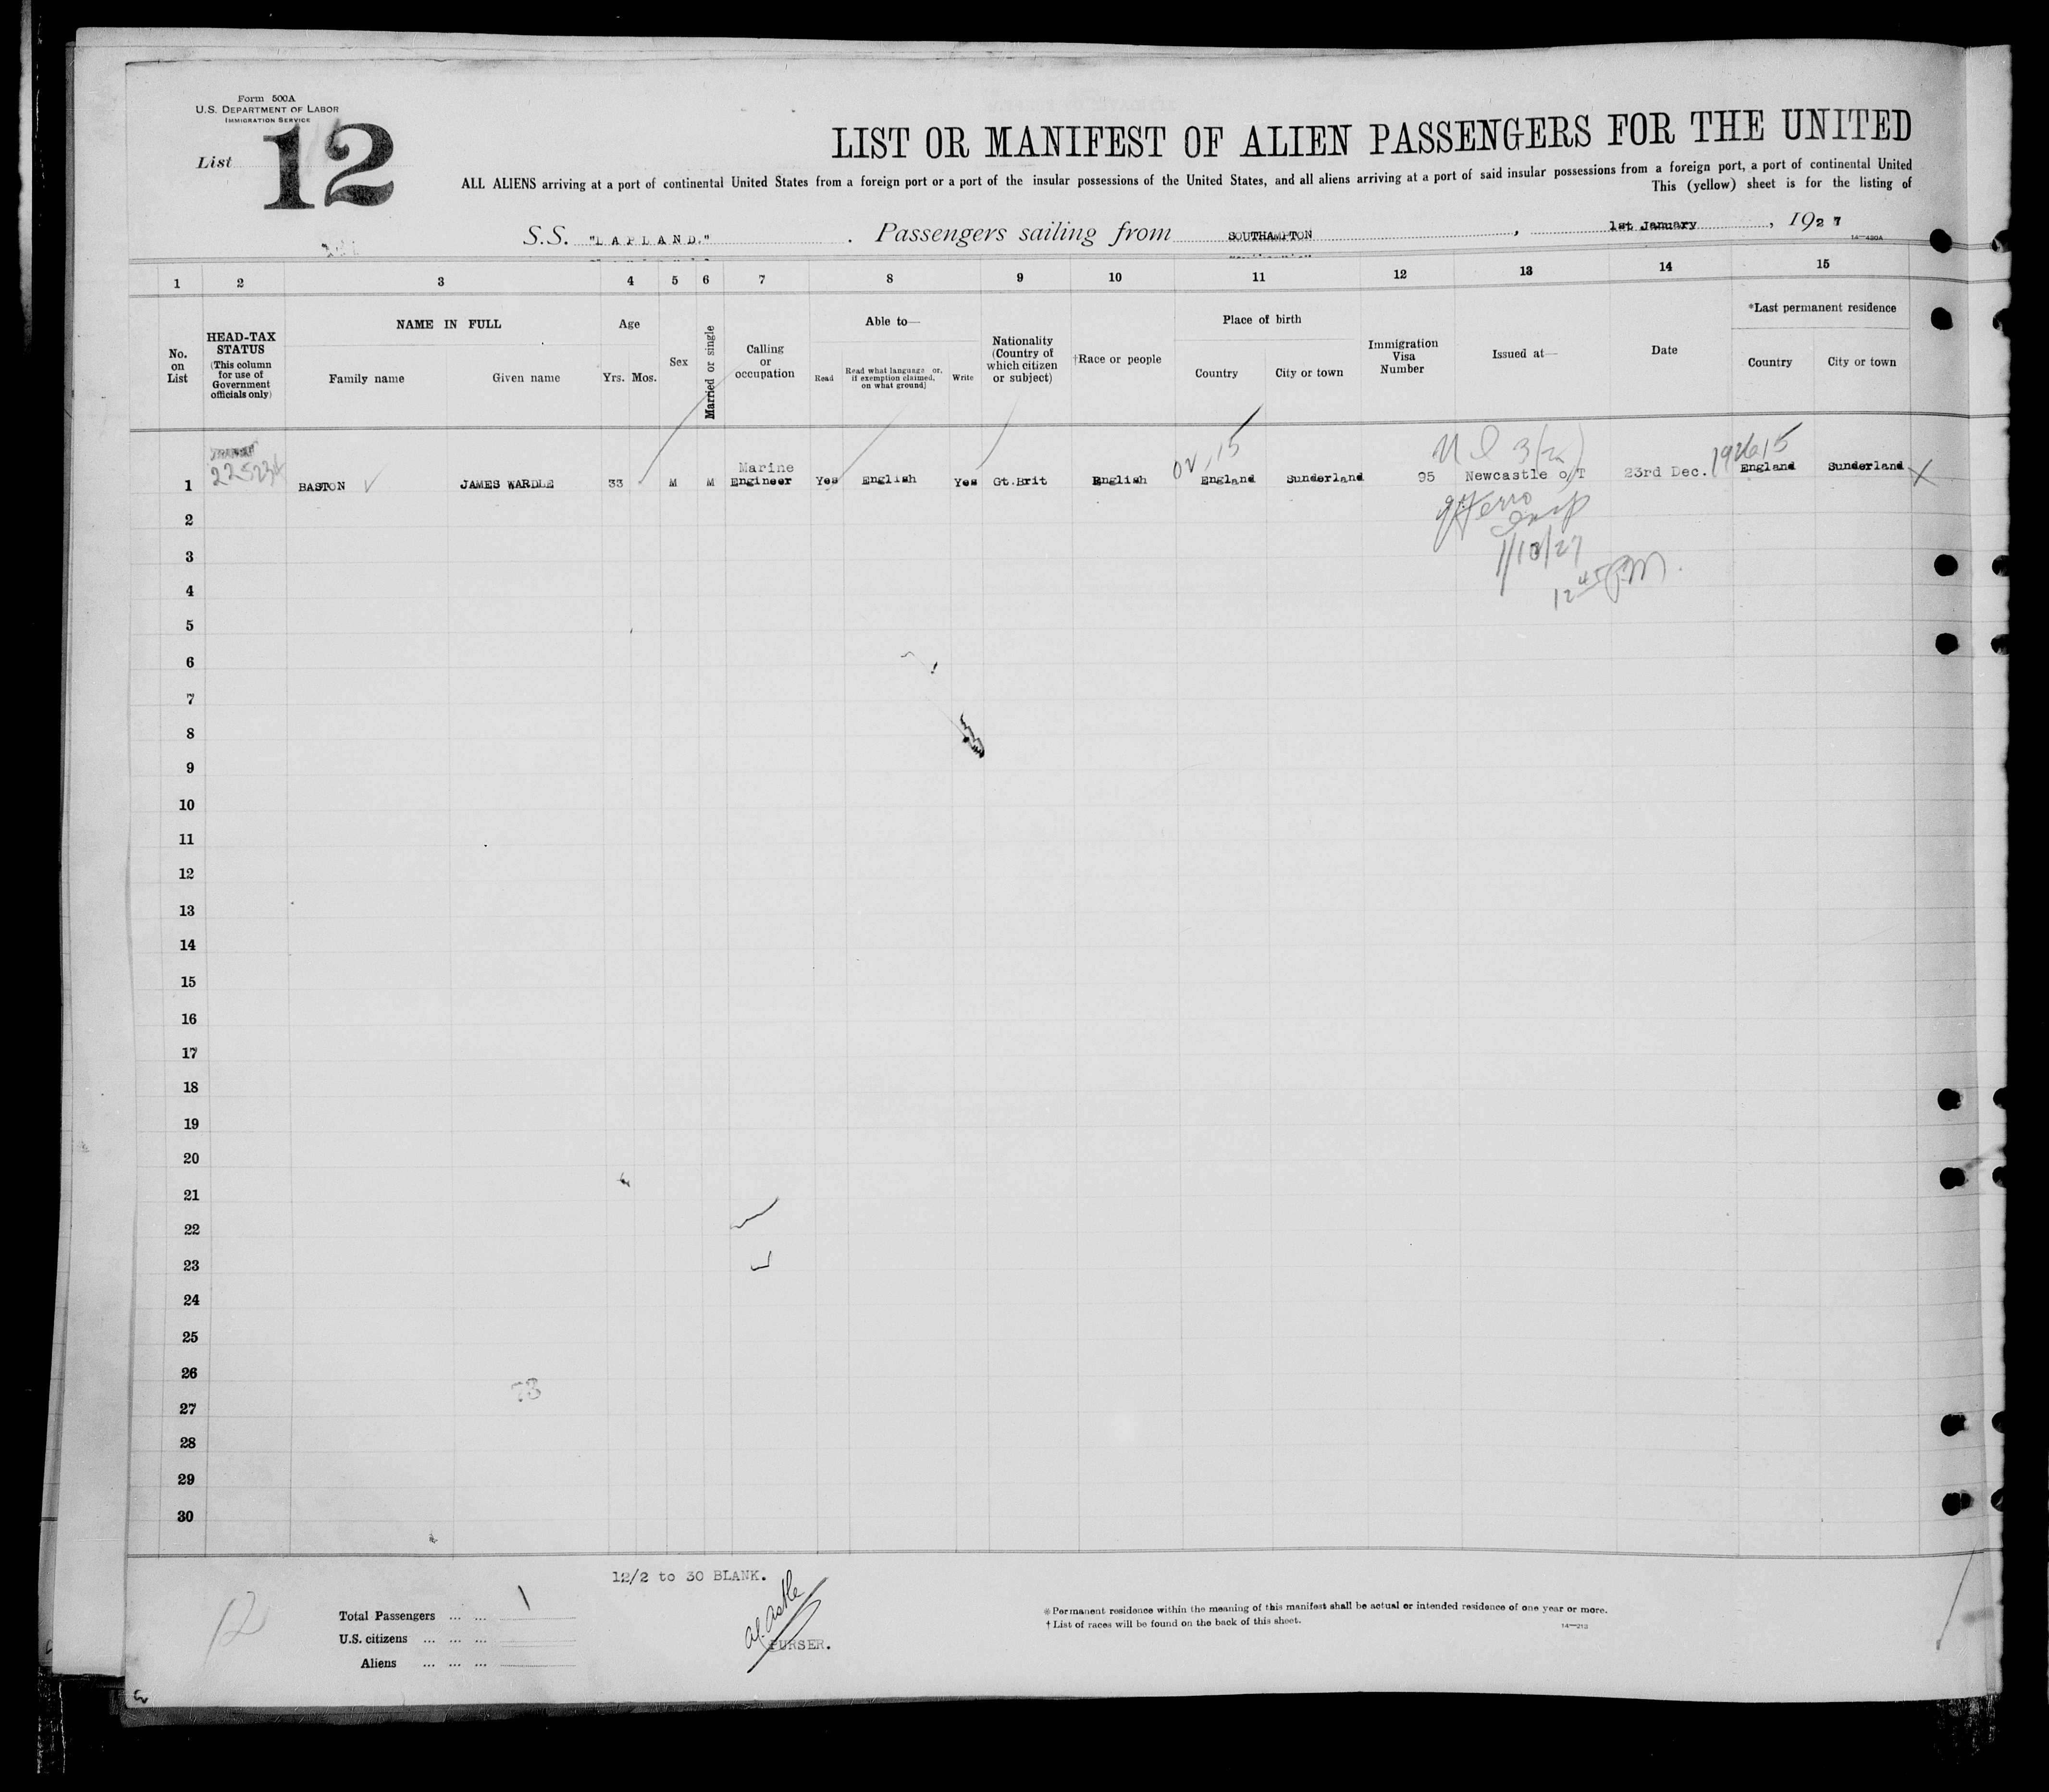 Form 500A
U.S. DEPARTMENT OF LABOR
IMMIGRATION SERVICE
List 12
LIST OR MANIFEST OF ALIEN PASSENGERS FOR THE UNITED
ALL ALIENS arriving at a port of continental United States from a foreign port or a port of the insular possessions of the United States, and all aliens arriving at a port of said insular possessions from a foreign port, a port of continental United
This (yellow) sheet is for the listing of
S.S. "LAPLAND." . Passengers sailing from SOUTHAMPTON , 1st January , 1927
14—430A
1 2 3 4 5 6 7 8 9 10 11 12 13 14 15
No. on List
HEAD-TAX STATUS (This column for use of Government officials only)
NAME IN FULL
Family name
Given name
Age
Yrs. Mos.
Sex
Married or single
Calling or occupation
Able to—
Read
Read what language or, if exemption claimed, on what ground)
Write
Nationality (Country of which citizen or subject)
†Race or people
Place of birth
Country
City or town
Immigration Visa Number
Issued at—
Date
*Last permanent residence
Country
City or town
1 BASTON JAMES WARDLE 33 M M Marine Engineer Yes English Yes Gt.Brit English England Sunderland 95 Newcastle o/T 23rd Dec. 1926 England Sunderland X
1/10/27
12 45 PM.
2
3
4
5
6
7
8
9
10
11
12
13
14
15
16
17
18
19
20
21
22
23
24
25
26
27
28
29
30
73
12/2 to 30 BLANK.
12
Total Passengers ... ... 1
U.S. citizens ... ... ...
Aliens ... ... ...
PURSER.
* Permanent residence within the meaning of this manifest shall be actual or intended residence of one year or more.
† List of races will be found on the back of this sheet.
14—213